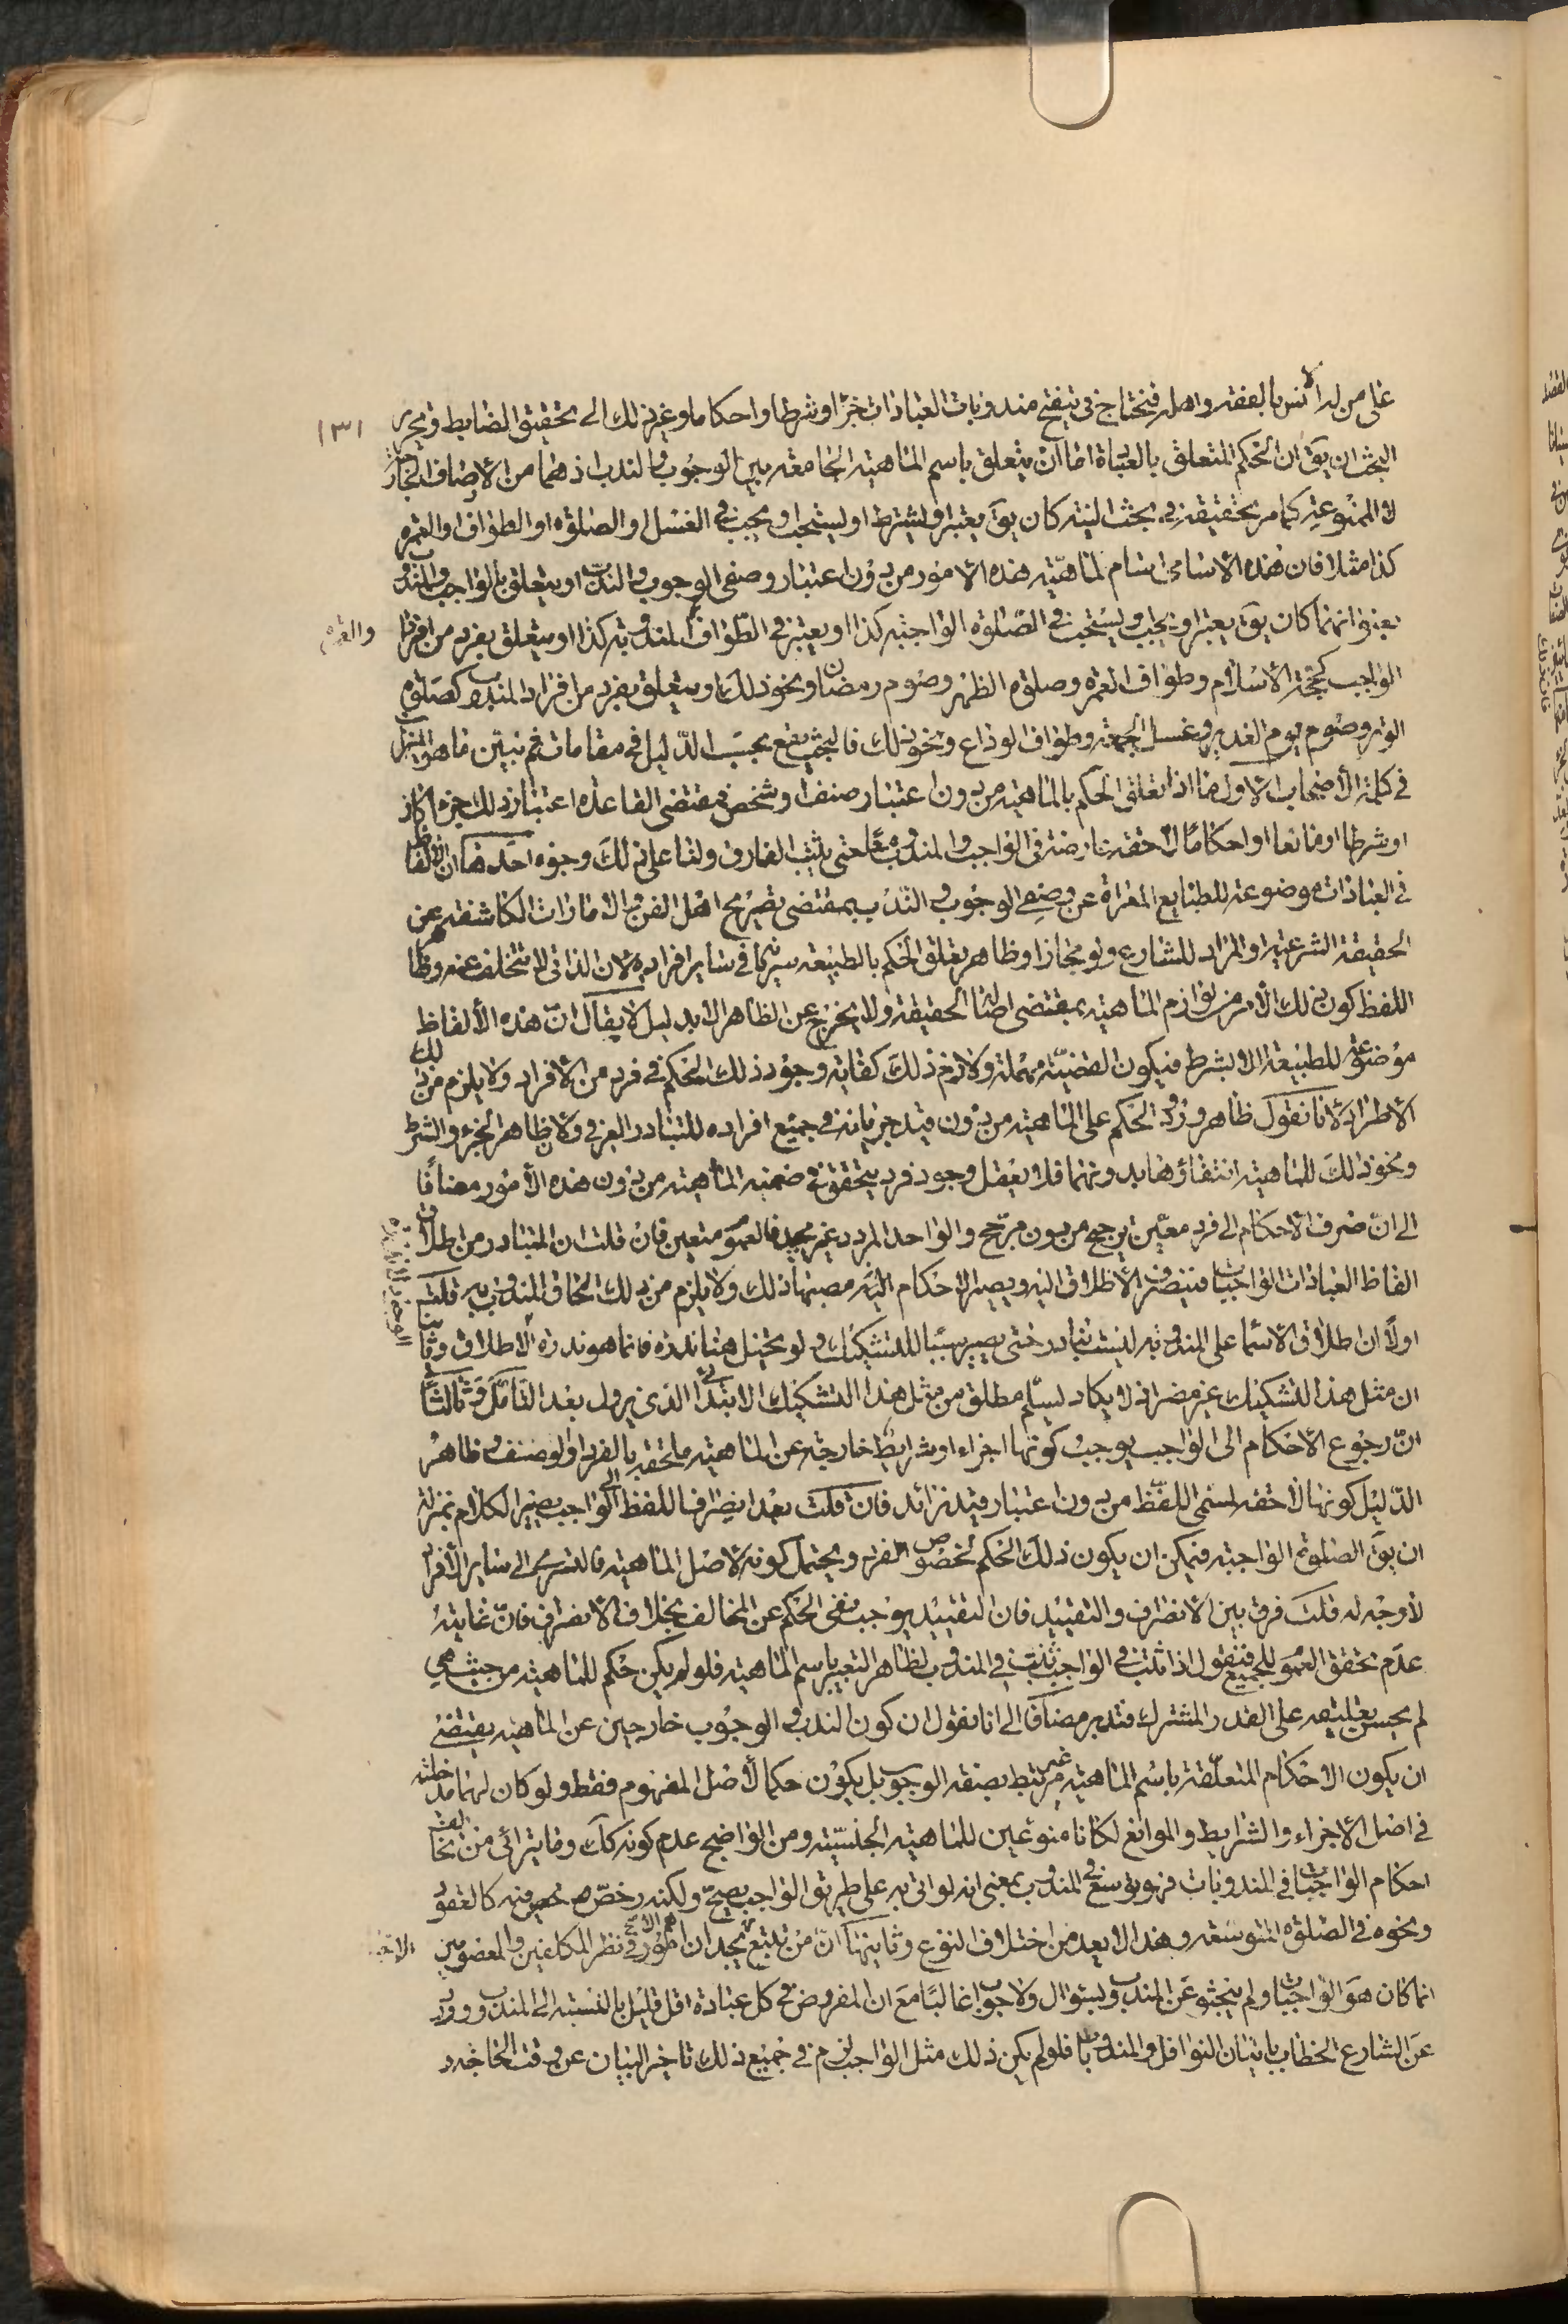 على من له انس بالفقه واهله فنحتاج في تنقيح مندوبات العبادات جزءا وشرطا واحكاما وغير ذلك الى تحقيق الضابط ومجرى
١٣١
البحث ان يق ان الحكم المتعلق بالعبادة اما ان يتعلق باسم الماهية الجامعة بين الوجوب والندب اذ هما من الأوصاف الخارجية
لا المنوعة كما مر تحقيقه في بحث النية كان يق يعتبر او يشترط او يستحب او يجب في الغسل او الصلوة او الطواف او العمرة
كذا مثلا فان هذه الاسامي اسام لماهية هذه الامور من دون اعتبار وصفي الوجوب والندب او يتعلق بالواجب والمندوب
بعنوانهما كان يق يعتبر او يجب او يستحب في الصلوة الواجبة كذا او يعتبر في الطواف المندوبة كذا او يتعلق بفرد من افراد
الواجب كحجة الاسلام وطواف العمرة وصلوة الظهر وصوم رمضان ونحو ذلك او يتعلق بفرد من افراد المندوب كصلوة
الوتر وصوم يوم الغدير وغسل الجمعة وطواف الوداع ونحو ذلك فالبحث يقع بحسب الدليل في مقامات ثم نبين ما هو المنزل
في كلمة الأصحاب الاول ما اذا تعلق الحكم بالماهية من دون اعتبار صنف او شخص فمقتضى القاعدة اعتبار ذلك جزءا كان
او شرطا او مانعا او احكاما لاحقة عارضة في الواجب والمندوب معا حتى يثبت الفارق ولنا على ذلك وجوه احدها ان الالفاظ
في العبادات موضوعة للطبايع المعراة عن وصفي الوجوب والندب بمقتضى تصريح اهل الفن والامارات الكاشفة عن
الحقيقة الشرعية والمراد للشارع ولو مجازا وظاهر تعلق الحكم بالطبيعة سريانها في ساير افراده لان الذاتي لا يتخلف عنه وظاهر
اللفظ كون ذلك الأمر من لوازم الماهية بمقتضى اصالة الحقيقة ولا يخرج عن الظاهر الا بدليل لا يقال ان هذه الألفاظ
موضوعة للطبيعة لا بشرط فيكون القضية مهملة ولازم ذلك كفاية وجود ذلك الحكم في فرد من الافراد ولا يلزم من ذلك
الاطراد لانا نقول ظاهر ورود الحكم على الماهية من دون قيد جريانه في جميع افراده للتبادر العرفي ولان ظاهر الجزء والشرط
ونحو ذلك للماهية انتفاؤها بدونهما فلا يعقل وجود فرد يتحقق في ضمنه الماهية من دون هذه الأمور مضافا
الى ان صرف الاحكام الى فرد معين ترجيح من دون مرجح والواحد المردد غير مجد فالعموم متعين فان قلت ان المتبادر من اطلاق
الفاظ العبادات الواجبات فينصرف الأطلاق اليه ويصير الاحكام اليه مصبها ذلك ولا يلزم من ذلك الحاق المندوب به قلت
اولا ان اطلاق الاسماء على المندوبة ليست بنادر حتى يصير سببا للتشكيك ولو تخيل هنا ندرة فانما هو ندرة الاطلاق وثانيا
ان مثل هذا التشكيك غير مضر اذ لا يكاد يسلم مطلق من مثل هذا التشكيك الابتدائي الذي يزول بعد التأمل وثالثا
ان رجوع الاحكام الى الواجب يوجب كونها اجزاء او شرايط خارجة عن الماهية ملحقة بالفرد او لوصنف وظاهر
الدليل كونها لاحقة لمسمى اللفظ من دون اعتبار قيد زائد فان قلت بعد انصراف اللفظ الى الواجب يصير الكلام بمنزلة
ان يق الصلوة الواجبة فيمكن ان يكون ذلك الحكم لخصوص الفرد ويحتمل كونه لاصل الماهية فالتسري الى ساير الأفراد
لا وجه له قلت فرق بين الانصراف والتقييد فان التقييد يوجب نفي الحكم عن المخالف بخلاف الانصراف فان غايته
عدم تحقق العموم للجميع فنقول اذا ثبت في الواجب ثبت في المندوب لظاهر التعبير باسم الماهية فلو لم يكن حكم للماهية من حيث هي
لم يحسن تعليقه على القدر المشترك فتدبر مضافا الى انا نقول ان كون الندب والوجوب خارجين عن الماهية يقتضي
ان يكون الاحكام المتعلقة باسم الماهية غير مرتبط بصفة الوجوب بل يكون حكما لأصل المفهوم فقط ولو كان لهما مدخلية
في اصل الأجزاء والشرايط والموانع لكانا منوعين للماهية الجنسية ومن الواضح عدم كونه كك وما يترائى من مخالفة
احكام الواجبات في المندوبات فهو توسع في المندوب بمعنى انه لو اتى به على طريق الواجب يصح ولكنه رخص فيه كالقعود
ونحوه في الصلوة المتوسعة وهذا لا يعد من اختلاف النوع وثانيها ان من تتبع يجد ان الاهم في نظر المكلفين والمعصومين
انما كان هو الواجبات ولم يبحثوا عن المندوب بسؤال ولا جواب غالبا مع ان المفروض في كل عبادة اقل قليل بالنسبة الى المندوب وورد
عن الشارع الخطاب باتيان النوافل والمندوبات فلو لم يكن ذلك مثل الواجب لزم في جميع ذلك تاخير البيان عن وقت الحاجة و